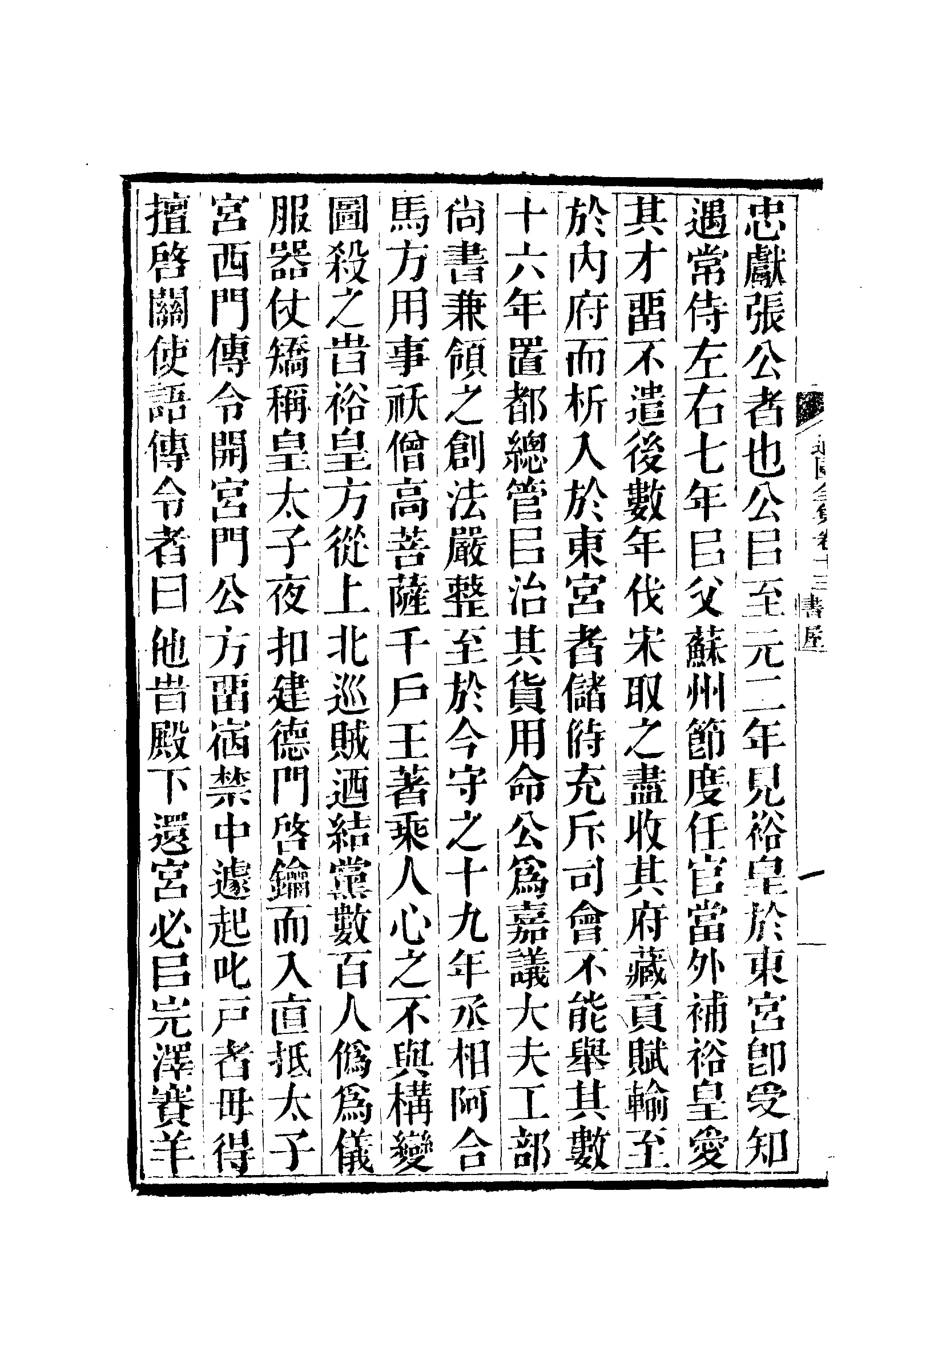 忠獻張公者也公㠯至元二年見裕皇於東宮卽受知
遇常侍左右七年㠯父蘇州節度任官當外補裕皇愛
其才畱不遣後數年伐宋取之盡收其府藏貢賦輸至
於內府而析入於東宮者儲偫充斥司會不能舉其數
十六年置都總管㠯治其貨用命公爲嘉議大夫工部
尙書兼領之創法嚴整至於今守之十九年丞相阿合
馬方用事祅僧高菩薩千戶王著乘人心之不與構變
圖殺之旹裕皇方從上北巡賊迺結黨數百人僞爲儀
服器仗矯稱皇太子夜扣建德門啓鑰而入直抵太子
宮西門傳令開宮門公方畱宿禁中遽起叱戸者毋得
擅啓關使語傳令者曰他旹殿下還宮必㠯完澤賽羊
全集卷十三
書屋